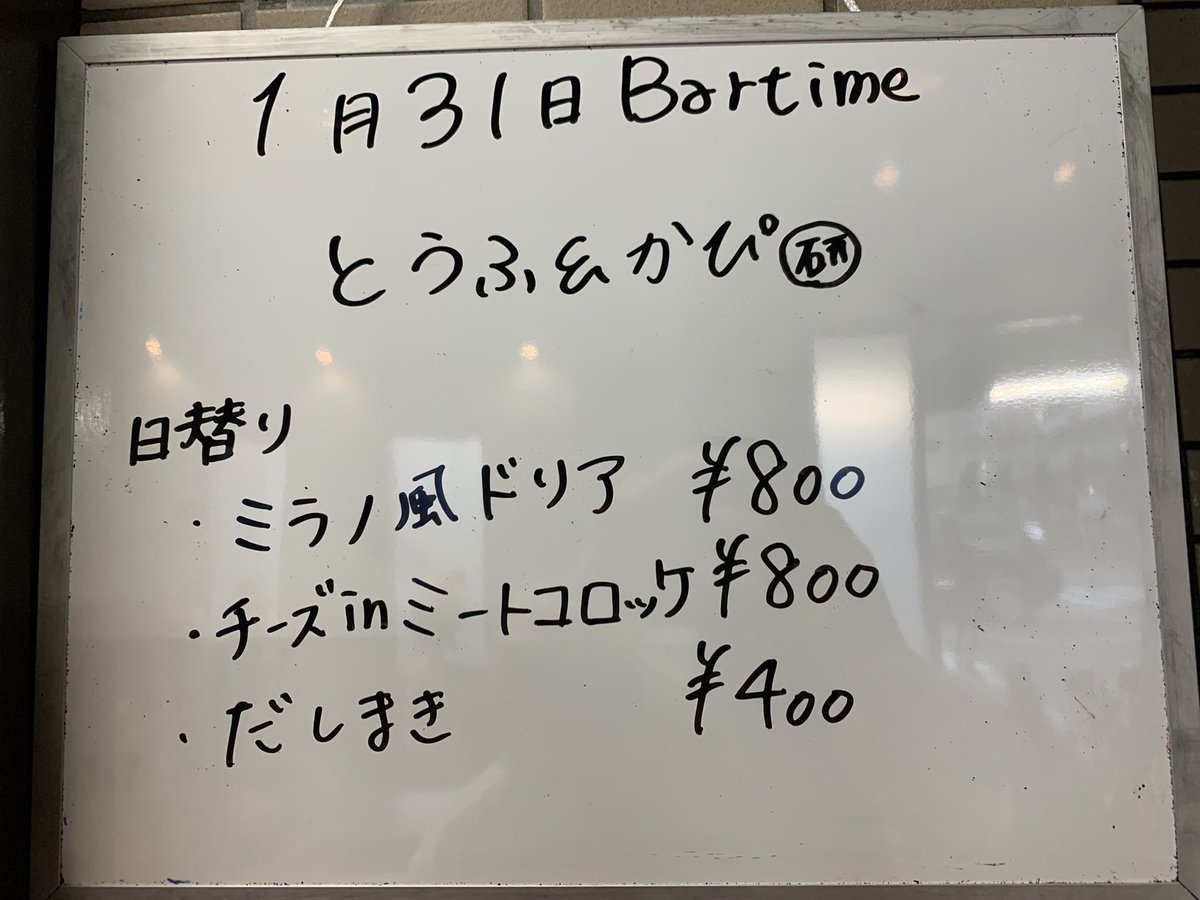 1月31日 Bartime
とうふ&かぴ㊮
日替り
・ミラノ風ドリア ¥800
・チーズinミートコロッケ ¥800
・だしまき ¥400